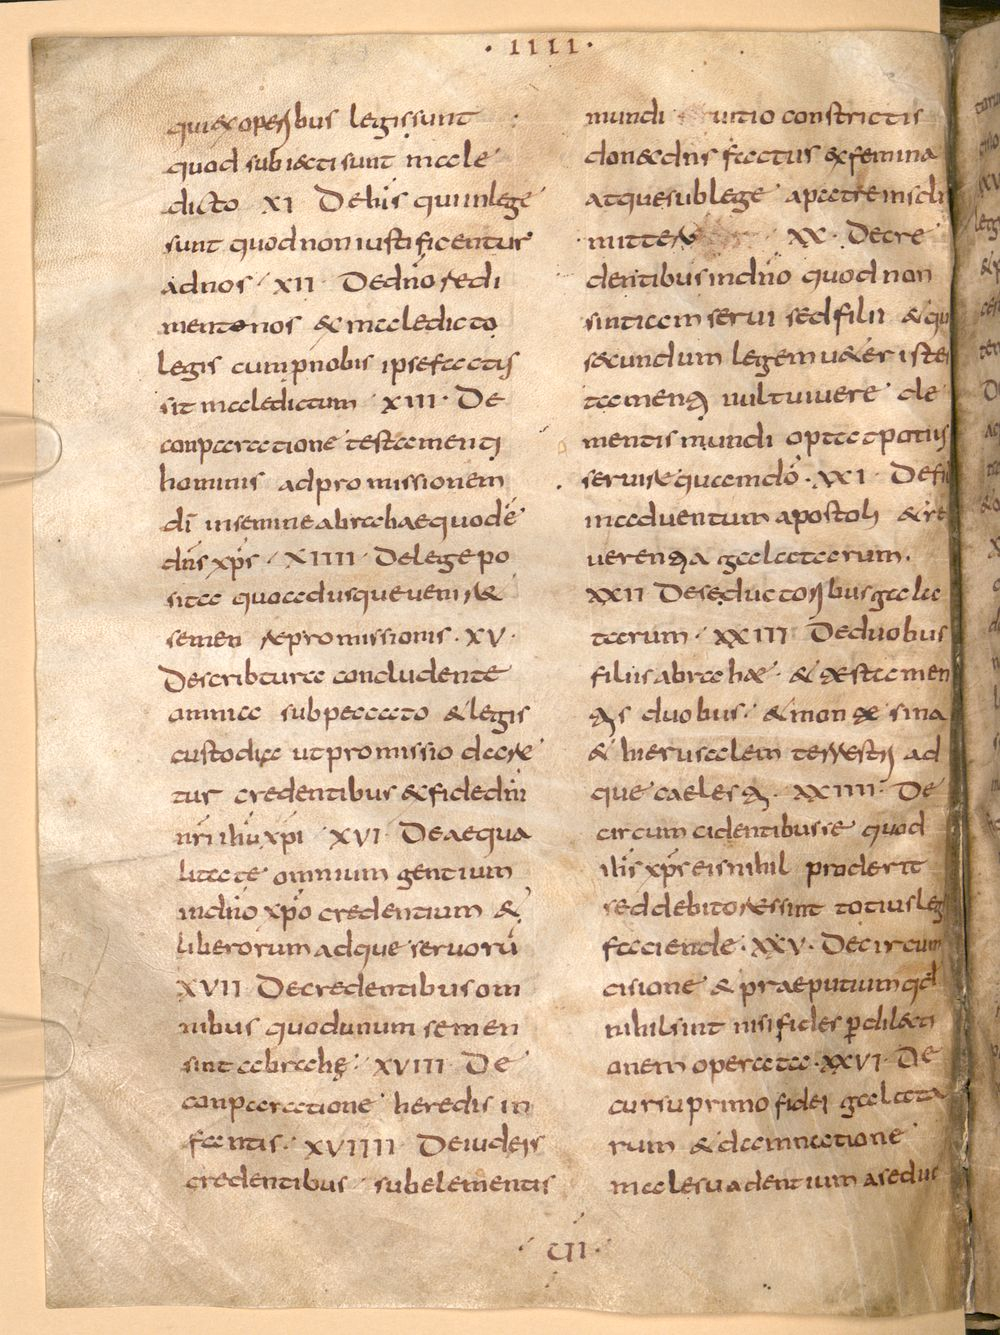 · IIII ·
qui ex operibus legis sunt
quod subiecti sunt male
dicto XI De his qui in lege
sunt quod non iustificentur
ad nos · XII · De dño redi
mente nos & maledicto
legis cum p nobis ipse factus
sit maledictum · XIII · De
conparatione testamenti
hominis ad promissionem
dī in semine abrahae quod ē
dñs xp̄s · XIIII · De lege po
sita quoadusque veniret
semen repromissionis · XV ·
De scribtura concludente
omnia sub peccato & legis
custodia ut promissio dare
tur credentibus ex fide dñi
nr̄i ihū xp̄i · XVI · De aequa
litate omnium gentium
in dño xp̄o credentium &
liberorum adque servorū
XVII De credentibus om
nibus quod unum semen
sint abrahę · XVIII · De
conparatione heredis in
fantis · XVIIII De iudeis
credentibus sub elementis
mundi vitio constrictis
donec dñs factus ex femina
atque sub lege a patre
mitter · XX · De cre
dentibus in dño quod non
sint iam servi sed filii & qui
secundum legem veteris tes
tamenti vult vivere ele
mentis mundi optat potius
servire quam dō · XXI · De
in adventum apostoli & re
verentia galatarum ·
XXII De seductoribus gala
tarum · XXIII De duobus
filiis abrahae · & testamen
tis duobus · & monte sina
& hierusalem terrestri ad
que caelesti · XXIIII · De
circumcidentibus se quod
ihs̄ xp̄s eis nihil proderit
sed debitores sint totius leg
faciende · XXV · De circum
cisione & praeputium qd
nihil sint nisi fides p dilecti
onem operata · XXVI · De
cursu primo fidei galata
rum & damnatione
male suadentium a sedu
· VI ·